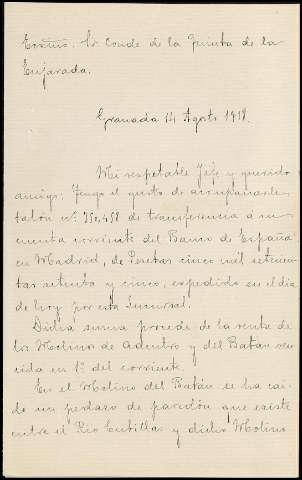 Excmo. Sr. Conde de la Quinta de la
Enjarada.
Granada 14 Agosto 1918.
Mi respetable Jefe y querido
amigo: Tengo el gusto de acompañarle
talón nº 350,458 de transferencia á su
cuenta corriente del Banco de España
en Madrid, de Pesetas cinco mil setecien-
tas setenta y cinco, expedido en el dia
de hoy por esta Sucursal.
Dicha suma procede de la renta de
los Molinos de Adentro y del Batán ven-
cida en 1º del corriente.
En el Molino del Batán se ha cai-
do un pedazo de paredón que existe
entre el Rio Cubillas y dicho Molino